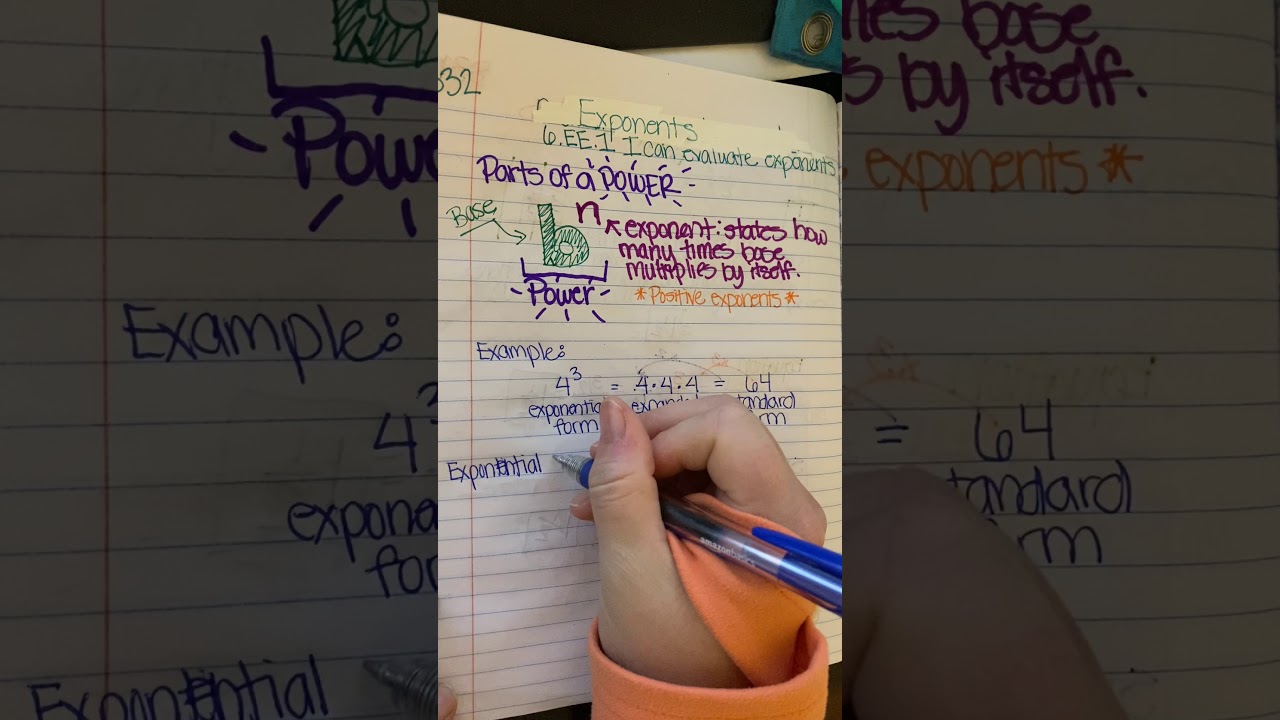 332
Exponents
6.EE.1 I can evaluate exponents
Parts of a POWER
Base
b n exponent: states how
many times base
multiplies by itself.
Power
*Positive exponents*
Example:
4³ = 4·4·4 = 64
exponential standard
form form
Exponential
amazonbasics